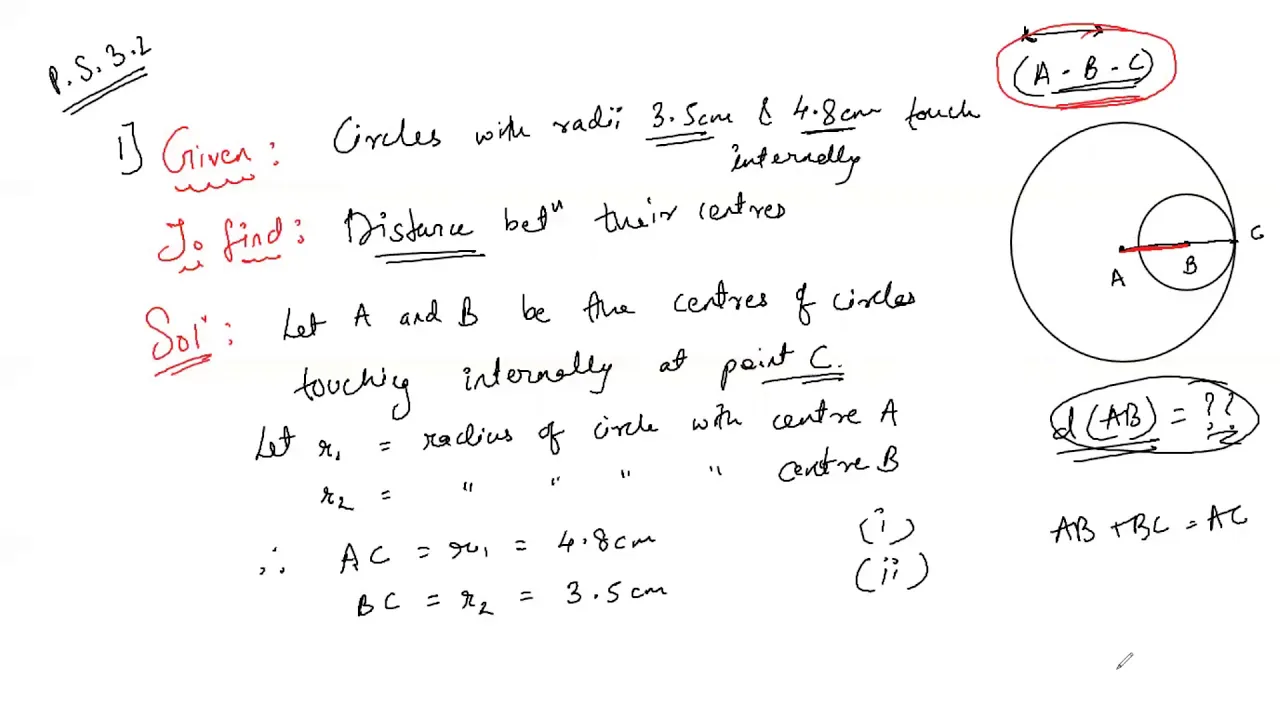 P.S.3.2
(A - B - C)
1] Given: Circles with radii 3.5cm & 4.8cm touch
internally
To find: Distance betⁿ their centres
Solⁿ: Let A and B be the centres of circles
touching internally at point C.
Let r₁ = radius of circle with centre A
r₂ = " " " " centre B
∴ AC = r₁ = 4.8cm (i)
BC = r₂ = 3.5cm (ii)
A B C
d(AB) = ??
AB + BC = AC